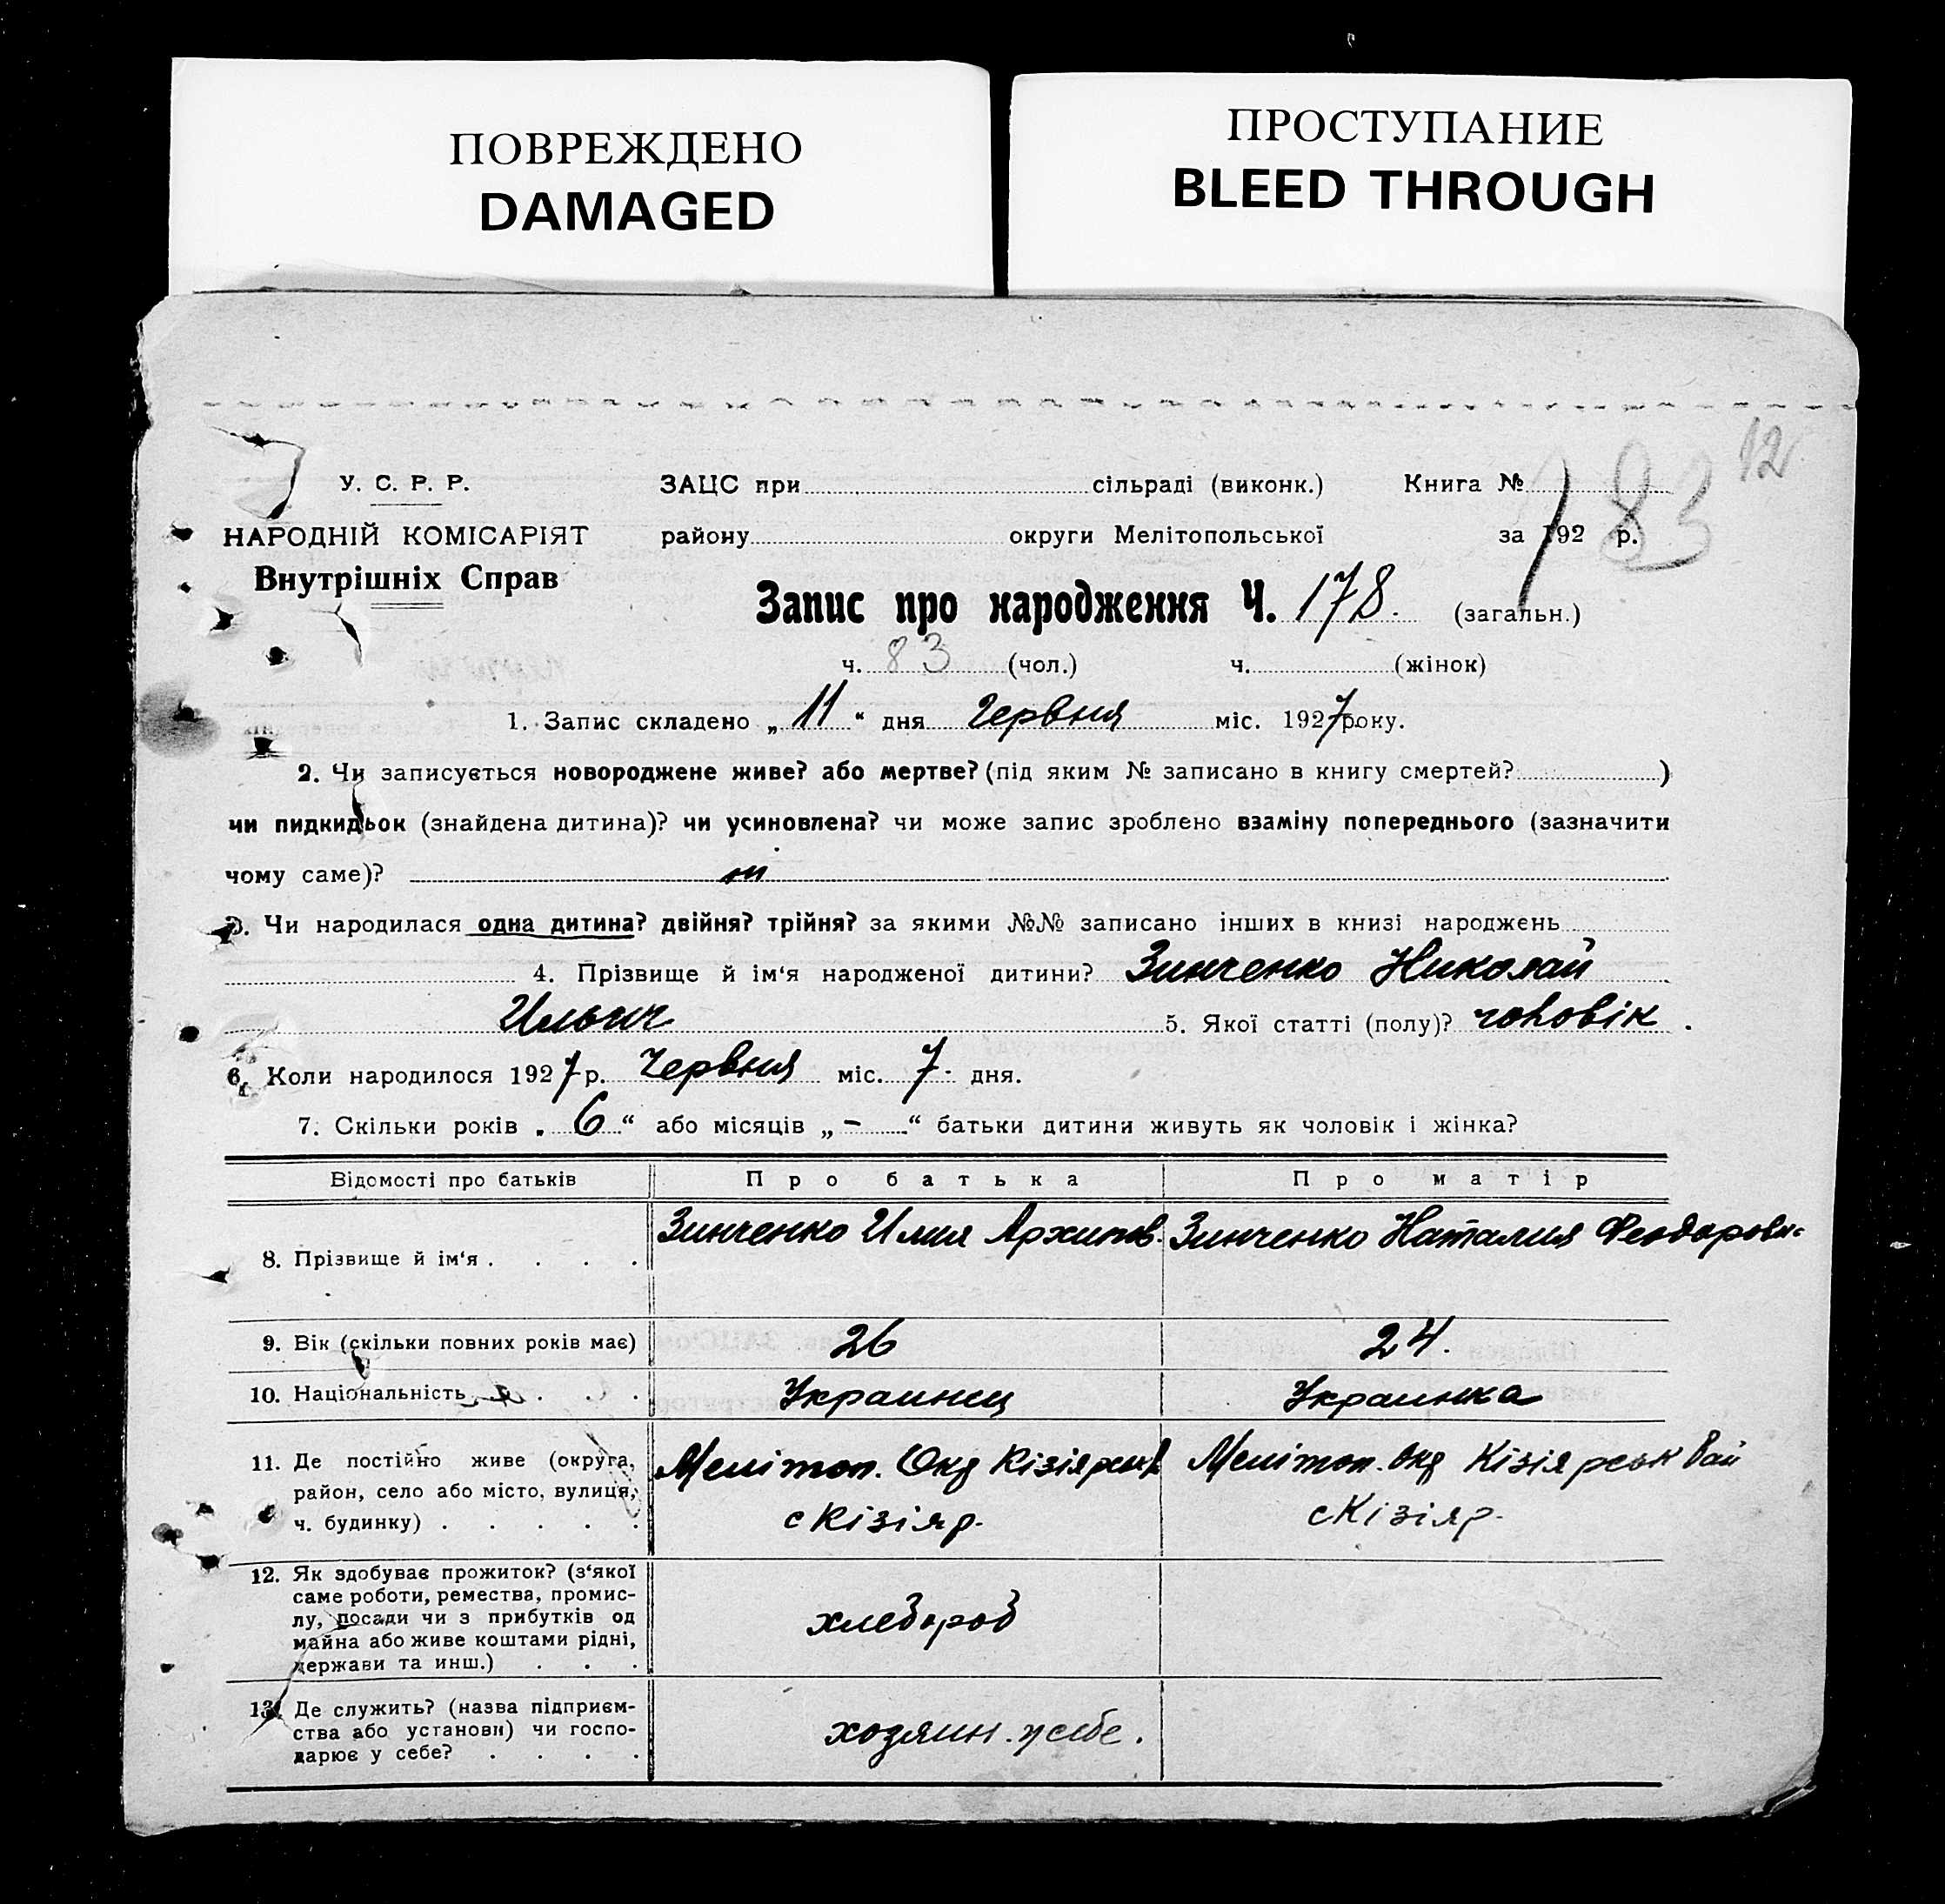 ПОВРЕЖДЕНО
DAMAGED
ПРОСТУПАНИЕ
BLEED THROUGH
12
183
У. С. Р. Р.
НАРОДНІЙ КОМІСАРІЯТ
Внутрішніх Справ
ЗАЦС при сільраді (виконк.) Книга №
району округи Мелітопольської за 192 р.
Запис про народження Ч. 178. (загальн.)
ч. 83 (чол.) ч. (жінок)
1. Запис складено „ 11 “ дня Червня міс. 1927 року.
2. Чи записується новороджене живе? або мертве? (під яким № записано в книгу смертей? )
чи пидкидьок (знайдена дитина)? чи усиновлена? чи може запис зроблено взаміну попереднього (зазначити
чому саме)?
3. Чи народилася одна дитина? двійня? трійня? за якими №№ записано інших в книзі народжень
4. Прізвище й ім‘я народженої дитини? Зинченко Николай
Ильич 5. Якої статті (полу)? чоловік .
6. Коли народилося 1927 р. Червня міс. 7. дня.
7. Скільки років „ 6 “ або місяців „ – “ батьки дитини живуть як чоловік і жінка?
Відомості про батьків Про батька Про матір
8. Прізвище й ім‘я . . . . Зинченко Илия Архипов. Зинченко Наталия Феодоровн
9. Вік (скільки повних років має) 26 24.
10. Національність . . . Украинец Украинка
11. Де постійно живе (округа,
район, село або місто, вулиця,
ч. будинку) . . . . .
Мелітоп. Окр Кізіярськ
с Кізіяр.
Мелітоп. Окр Кізіярськ Рай
с Кізіяр.
12. Як здобуває прожиток? (з‘якої
саме роботи, ремества, промис-
лу, посади чи з прибутків од
майна або живе коштами рідні,
держави та инш.) . . .
хлебороб
13. Де служить? (назва підприєм-
ства або установи) чи госпо-
дарює у себе? . . . .
хозяин. у себе.